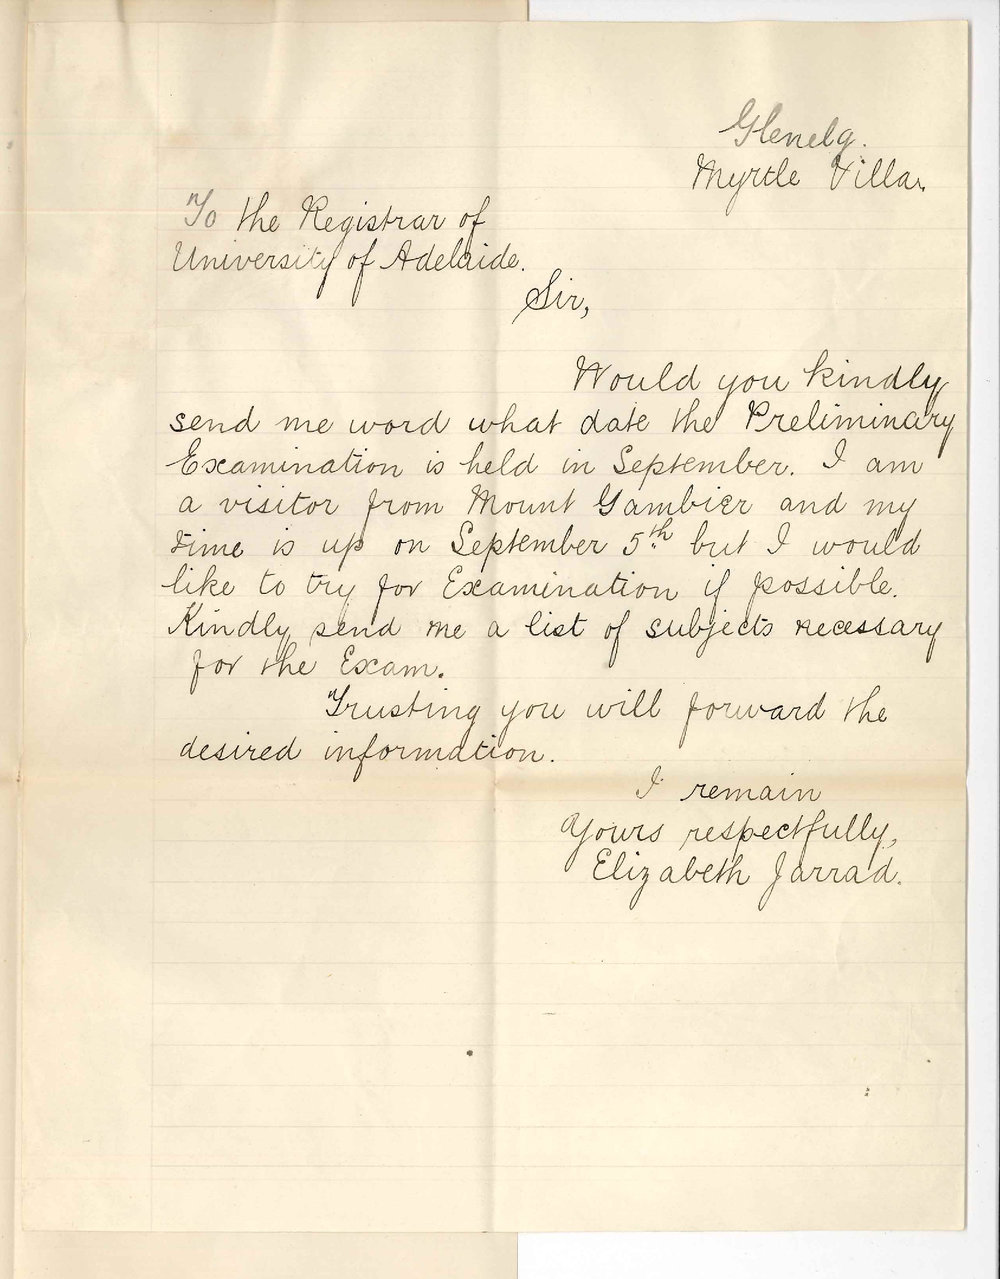 Glenelg.
Myrtle Villa.
To the Registrar of
University of Adelaide.
Sir,
Would you kindly
send me word what date the Preliminary
Examination is held in September. I am
a visitor from Mount Gambier and my
time is up on September 5th. but I would
like to try for Examination if possible.
Kindly send me a list of subjects necessary
for the Exam.
Trusting you will forward the
desired information.
I remain
Yours respectfully,
Elizabeth Jarrad.